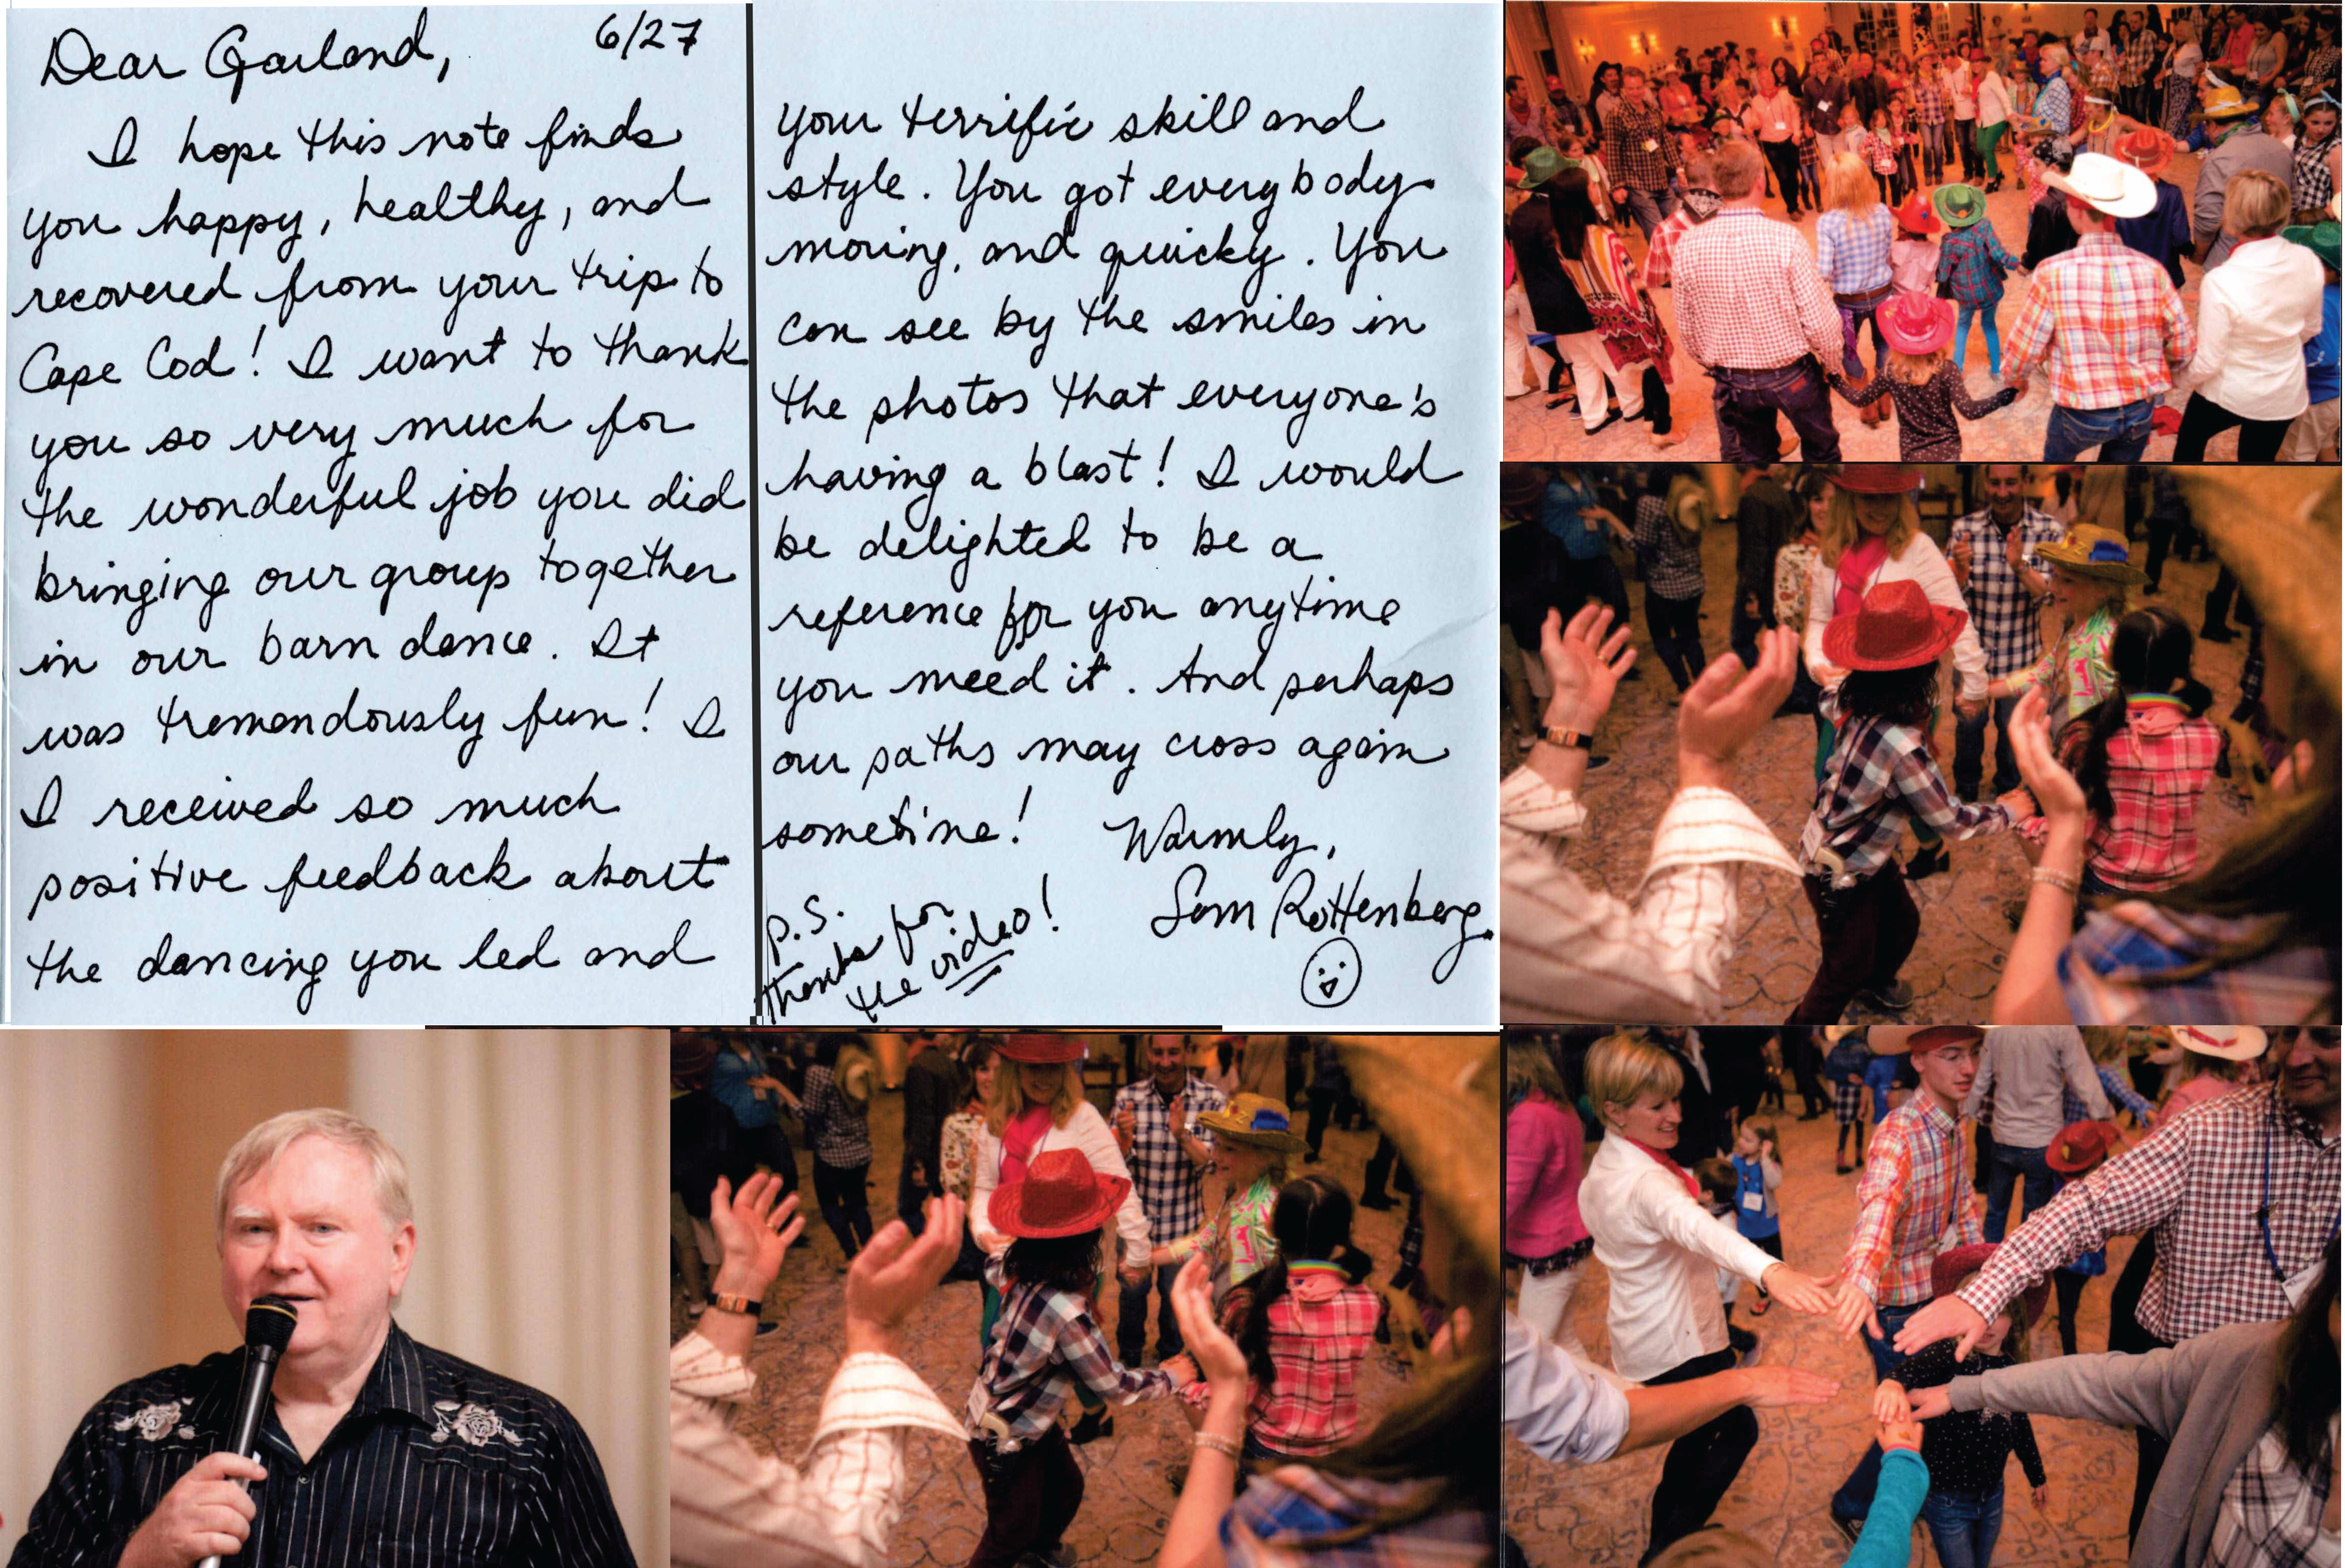 Dear Garland, 6/27
I hope this note finds
you happy, healthy, and
recovered from your trip to
Cape Cod! I want to thank
you so very much for
the wonderful job you did
bringing our group together
in our barn dance. It
was tremendously fun! I
I received so much
positive feedback about
the dancing you led and
your terrific skill and
style. You got everybody
moving, and quickly. You
can see by the smiles in
the photos that everyone's
having a blast! I would
be delighted to be a
reference for you anytime
you need it. And perhaps
our paths may cross again
sometime! Warmly,
Sam Rottenberg
P.S.
thanks for
the video!